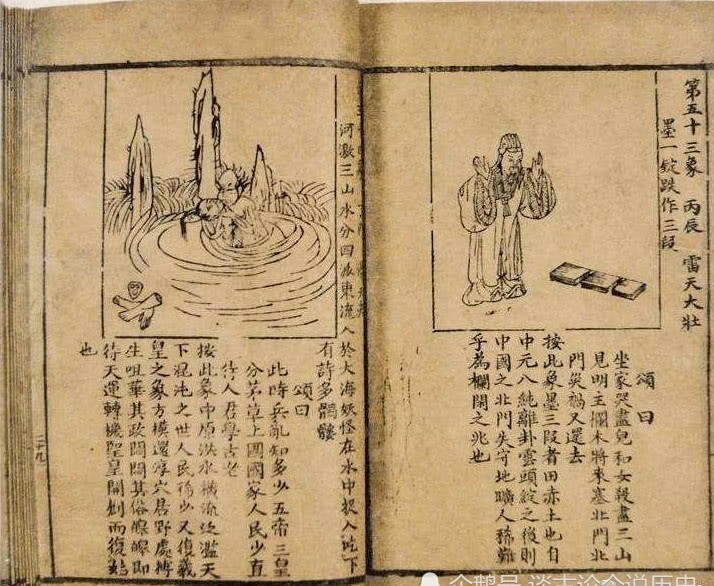 第五十三象 丙辰 雷天大壯
墨一錠跌作三段
頌曰
坐家哭盡兒和女殺盡三山
見明主攔木將來塞北門北
門災禍又還去
按此象墨三段者田赤土也自
中元八純離卦雲頭錠之後則
中國之北門失守地曠人稀難
乎為欄閉之兆也
河激三山水分四派東流入於大海妖怪在水中捉人吃下
有許多髑髏
頌曰
此時兵亂知多少五帝三皇
分茅草上國國家人民少直
待人君學古老
按此象中原洪水橫流泛濫天
下混沌之世人民稀少又復羲
皇之象方模還淳穴居野處摶
生咀華其政悶悶其俗皞皞即
待天運轉機聖皇開創而復始
也
企鹅号 谈古论今说历史